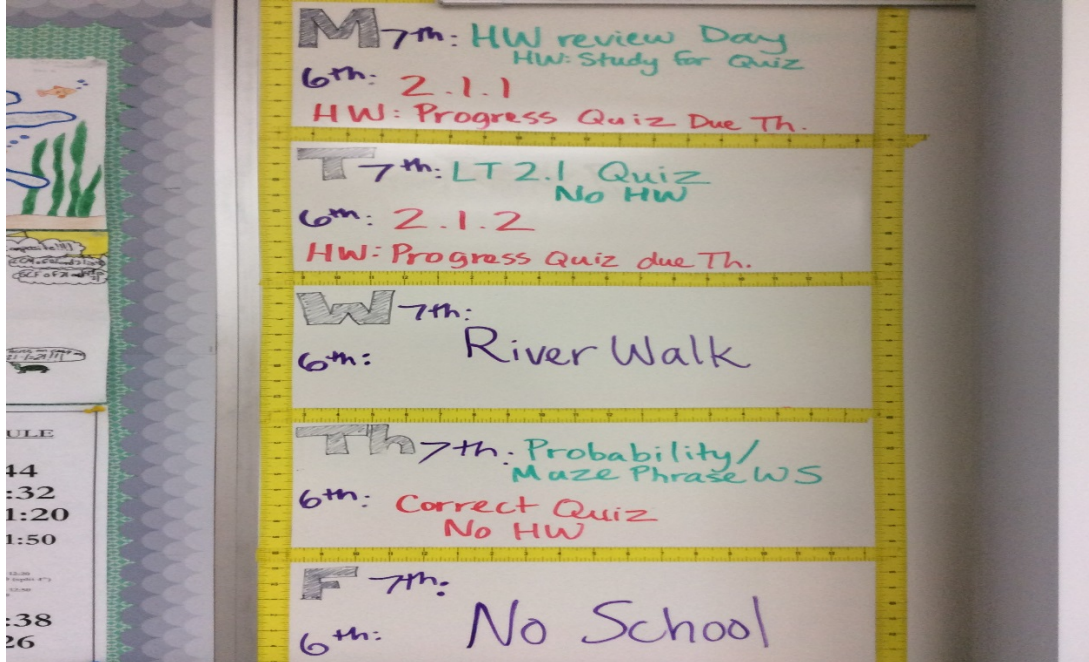 M 7th: HW review Day
HW: Study for Quiz
6th: 2.1.1
HW: Progress Quiz Due Th.
T 7th: LT 2.1 Quiz
No HW
6th: 2.1.2
HW: Progress Quiz due Th.
W 7th:
6th: River Walk
Th 7th: Probability/
Maze Phrase WS
6th: Correct Quiz
No HW
F 7th:
6th: No School
ULE
44
:32
1:20
1:50
:38
26